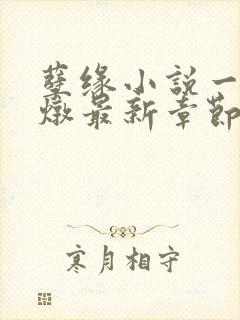 孽缘小説一
燉最新章節
寒月相守